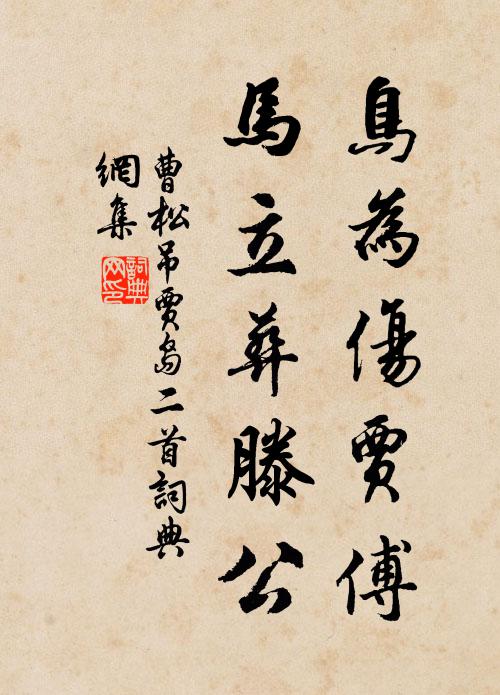 鳥為傷賈傅
馬立葬滕公
曹松吊賈島二首詞典
網集
詞典
网印